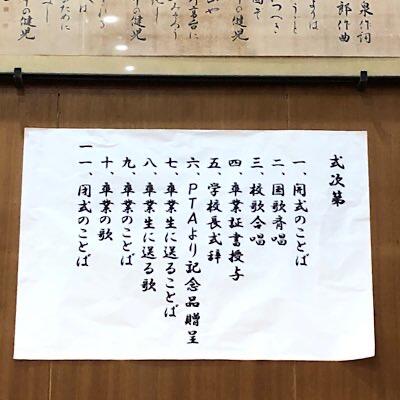 泉作詞
郎作曲
の健児
高台に
の健児
ために
式次第
一、開式のことば
二、国歌斉唱
三、校歌合唱
四、卒業証書授与
五、学校長式辞
六、PTAより記念品贈呈
七、卒業生に送ることば
八、卒業生に送る歌
九、卒業のことば
十、卒業の歌
一一、閉式のことば